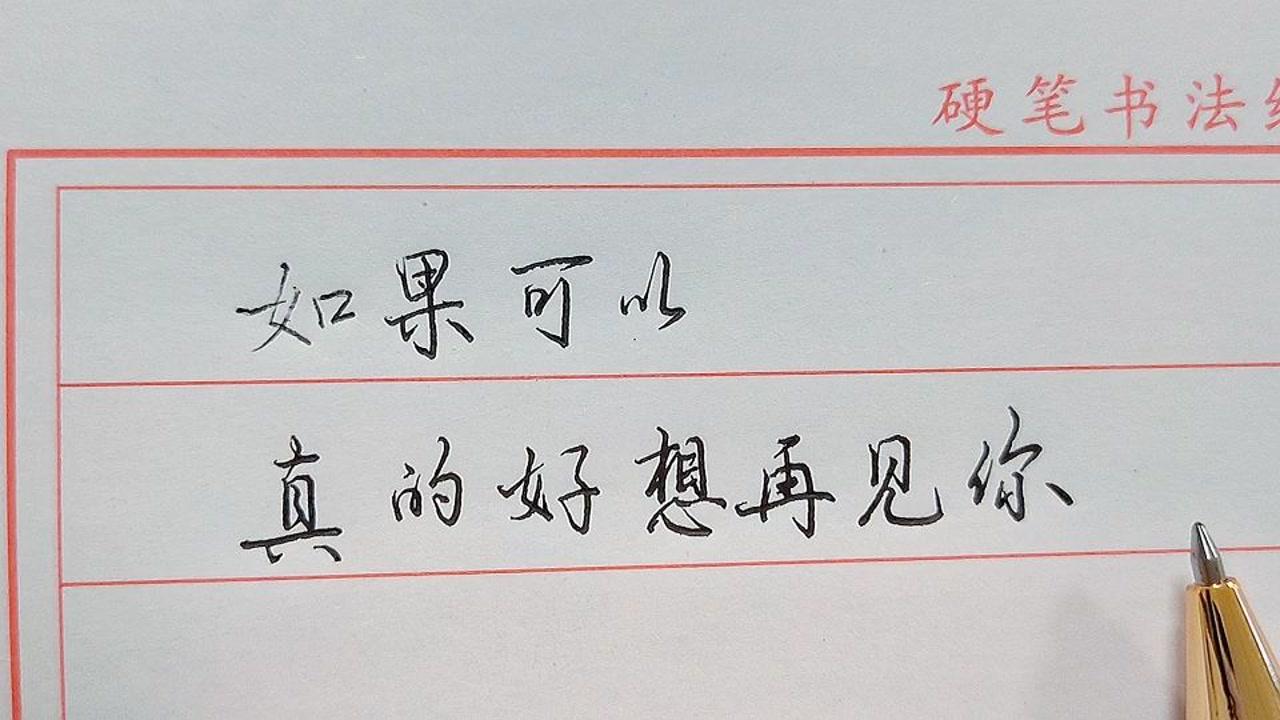 硬笔书法
如果可以
真的好想再见你